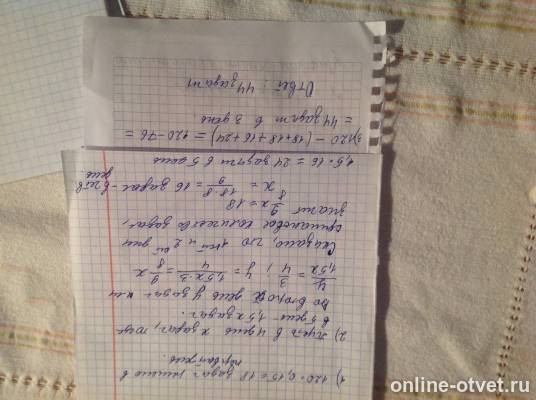 1) 120 · 0,15 = 18 задач решено в
первый день
2) Пусть в 4 день x задач, тогда
в 5 день - 1,5x задач.
Во второй день y задач или
y/1,5x = 3/4 ; y = 1,5x·3/4 = 9/8 x
Сказано, что в 1 и 2 дни
одинаковое количество задач,
значит
9/8 x = 18
x = 18·8/9 = 16 задач - в 4 день
1,5 · 16 = 24 задачи в 5 день
3) 120 - (18+18+16+24) = 120 - 76 =
= 44 задачи в 3 день
Ответ: 44 задачи
online-otvet.ru